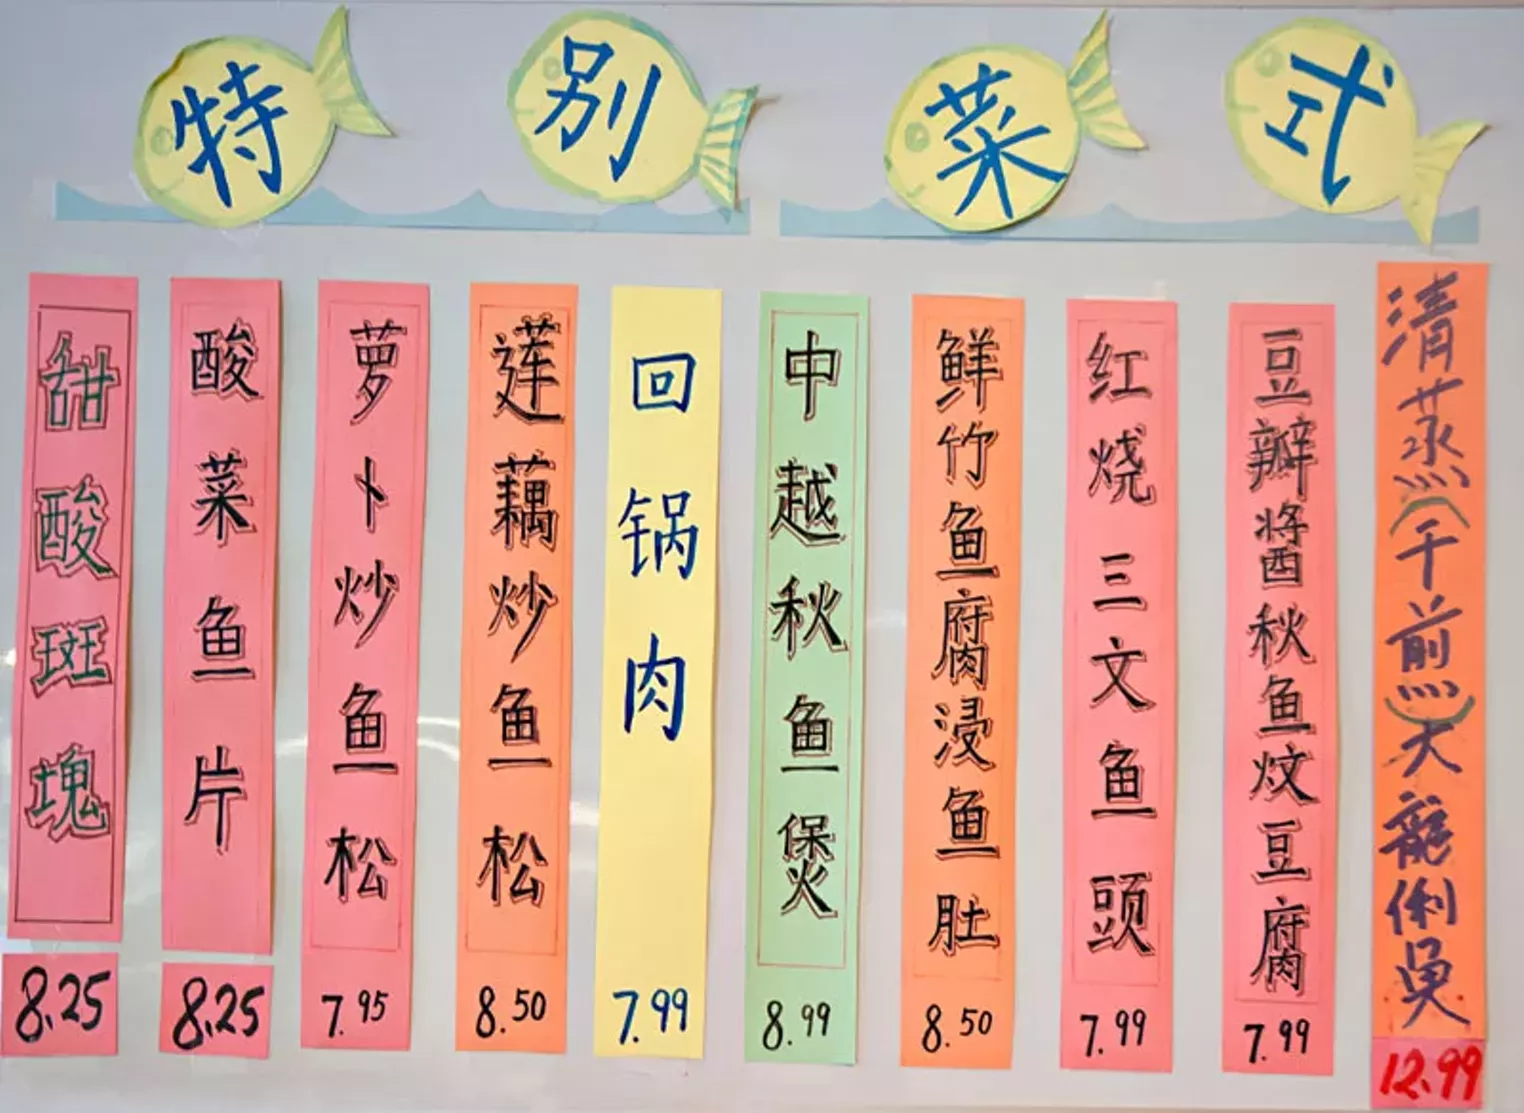 特别菜式
甜酸斑塊
8.25
酸菜鱼片
8.25
萝卜炒鱼松
7.95
莲藕炒鱼松
8.50
回锅肉
7.99
中越秋鱼煲
8.99
鲜竹鱼腐浸鱼肚
8.50
红烧三文鱼头
7.99
豆瓣醬秋鱼炆豆腐
7.99
清蒸(干煎)大龍俐魚
12.99